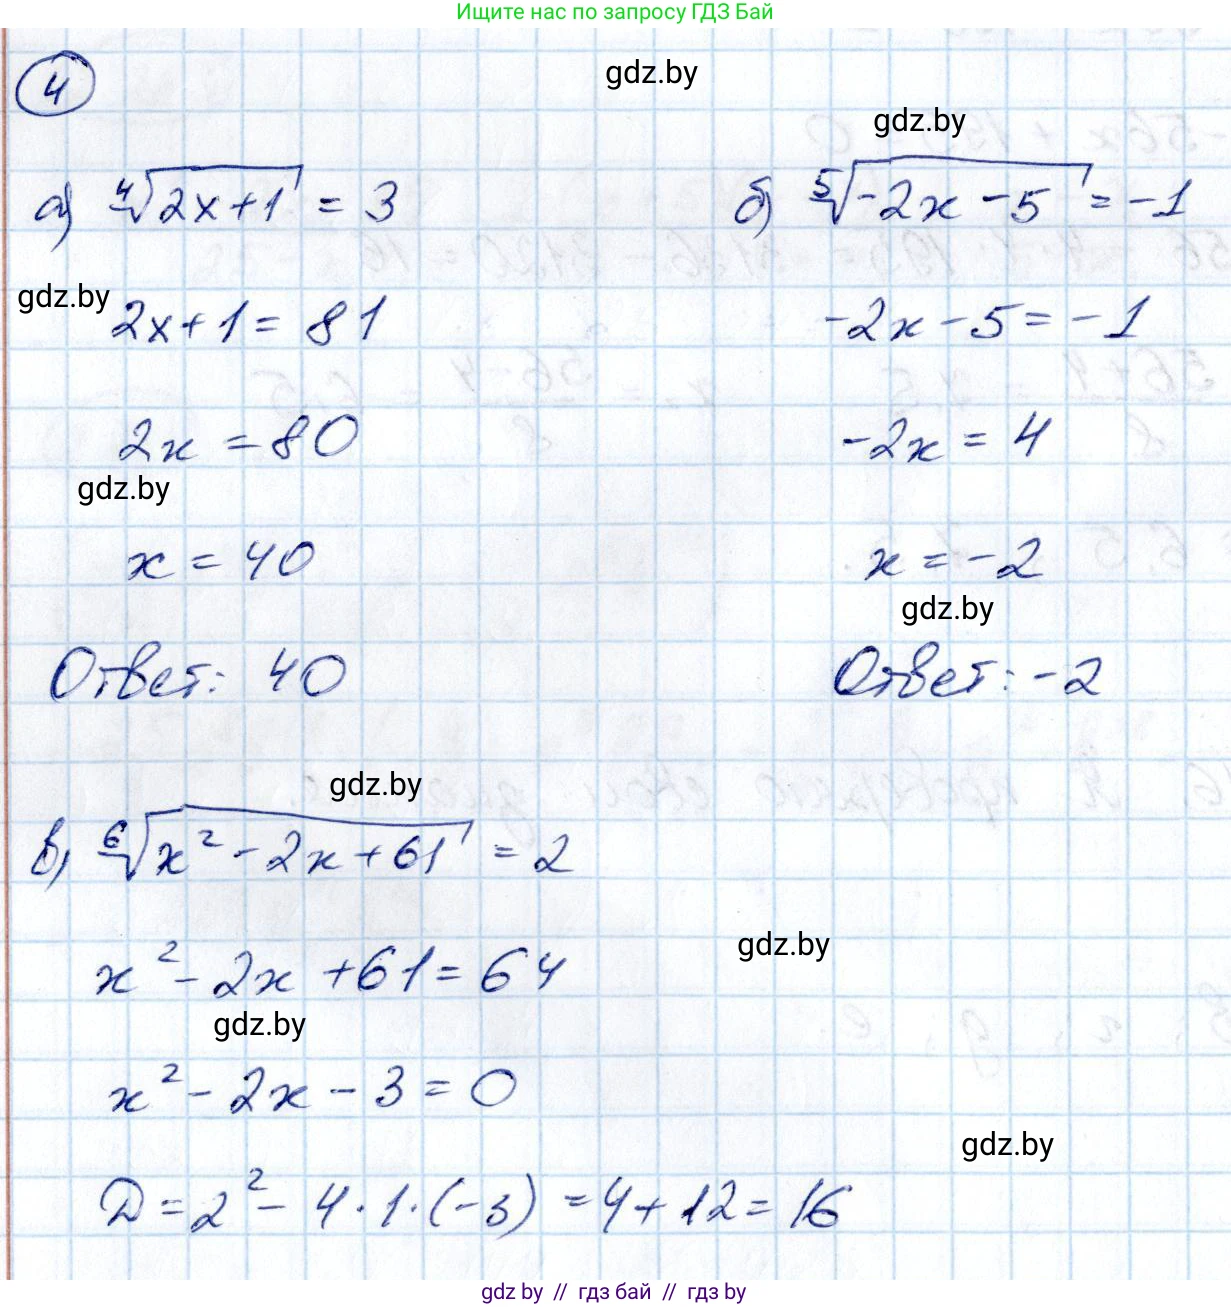 Ищите нас по запросу ГДЗ Бай
4
gdz.by
gdz.by
а) ⁴√(2x+1) = 3
б) ⁵√(-2x-5) = -1
gdz.by
2x+1 = 81
-2x-5 = -1
2x = 80
-2x = 4
gdz.by
x = 40
x = -2
gdz.by
Ответ: 40
Ответ: -2
gdz.by
в) ⁶√(x²-2x+61) = 2
gdz.by
x²-2x+61 = 64
gdz.by
x²-2x-3 = 0
gdz.by
Д = 2² - 4·1·(-3) = 4+12 = 16
gdz by // гдз бай // гдз by